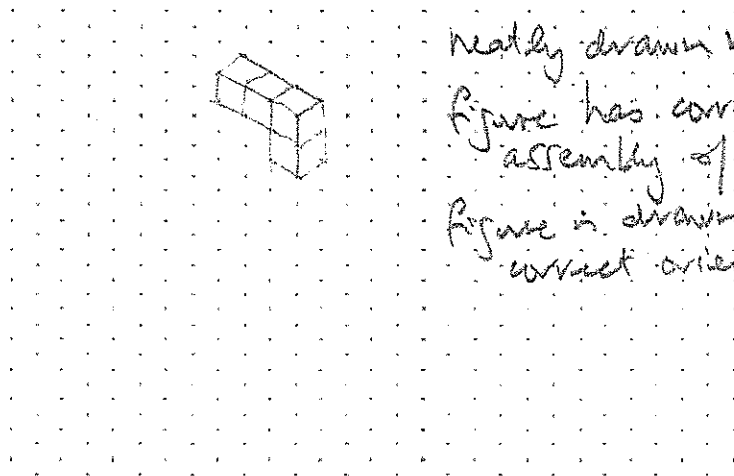 neatly drawn
figure has
assembly of
figure is drawn
correct